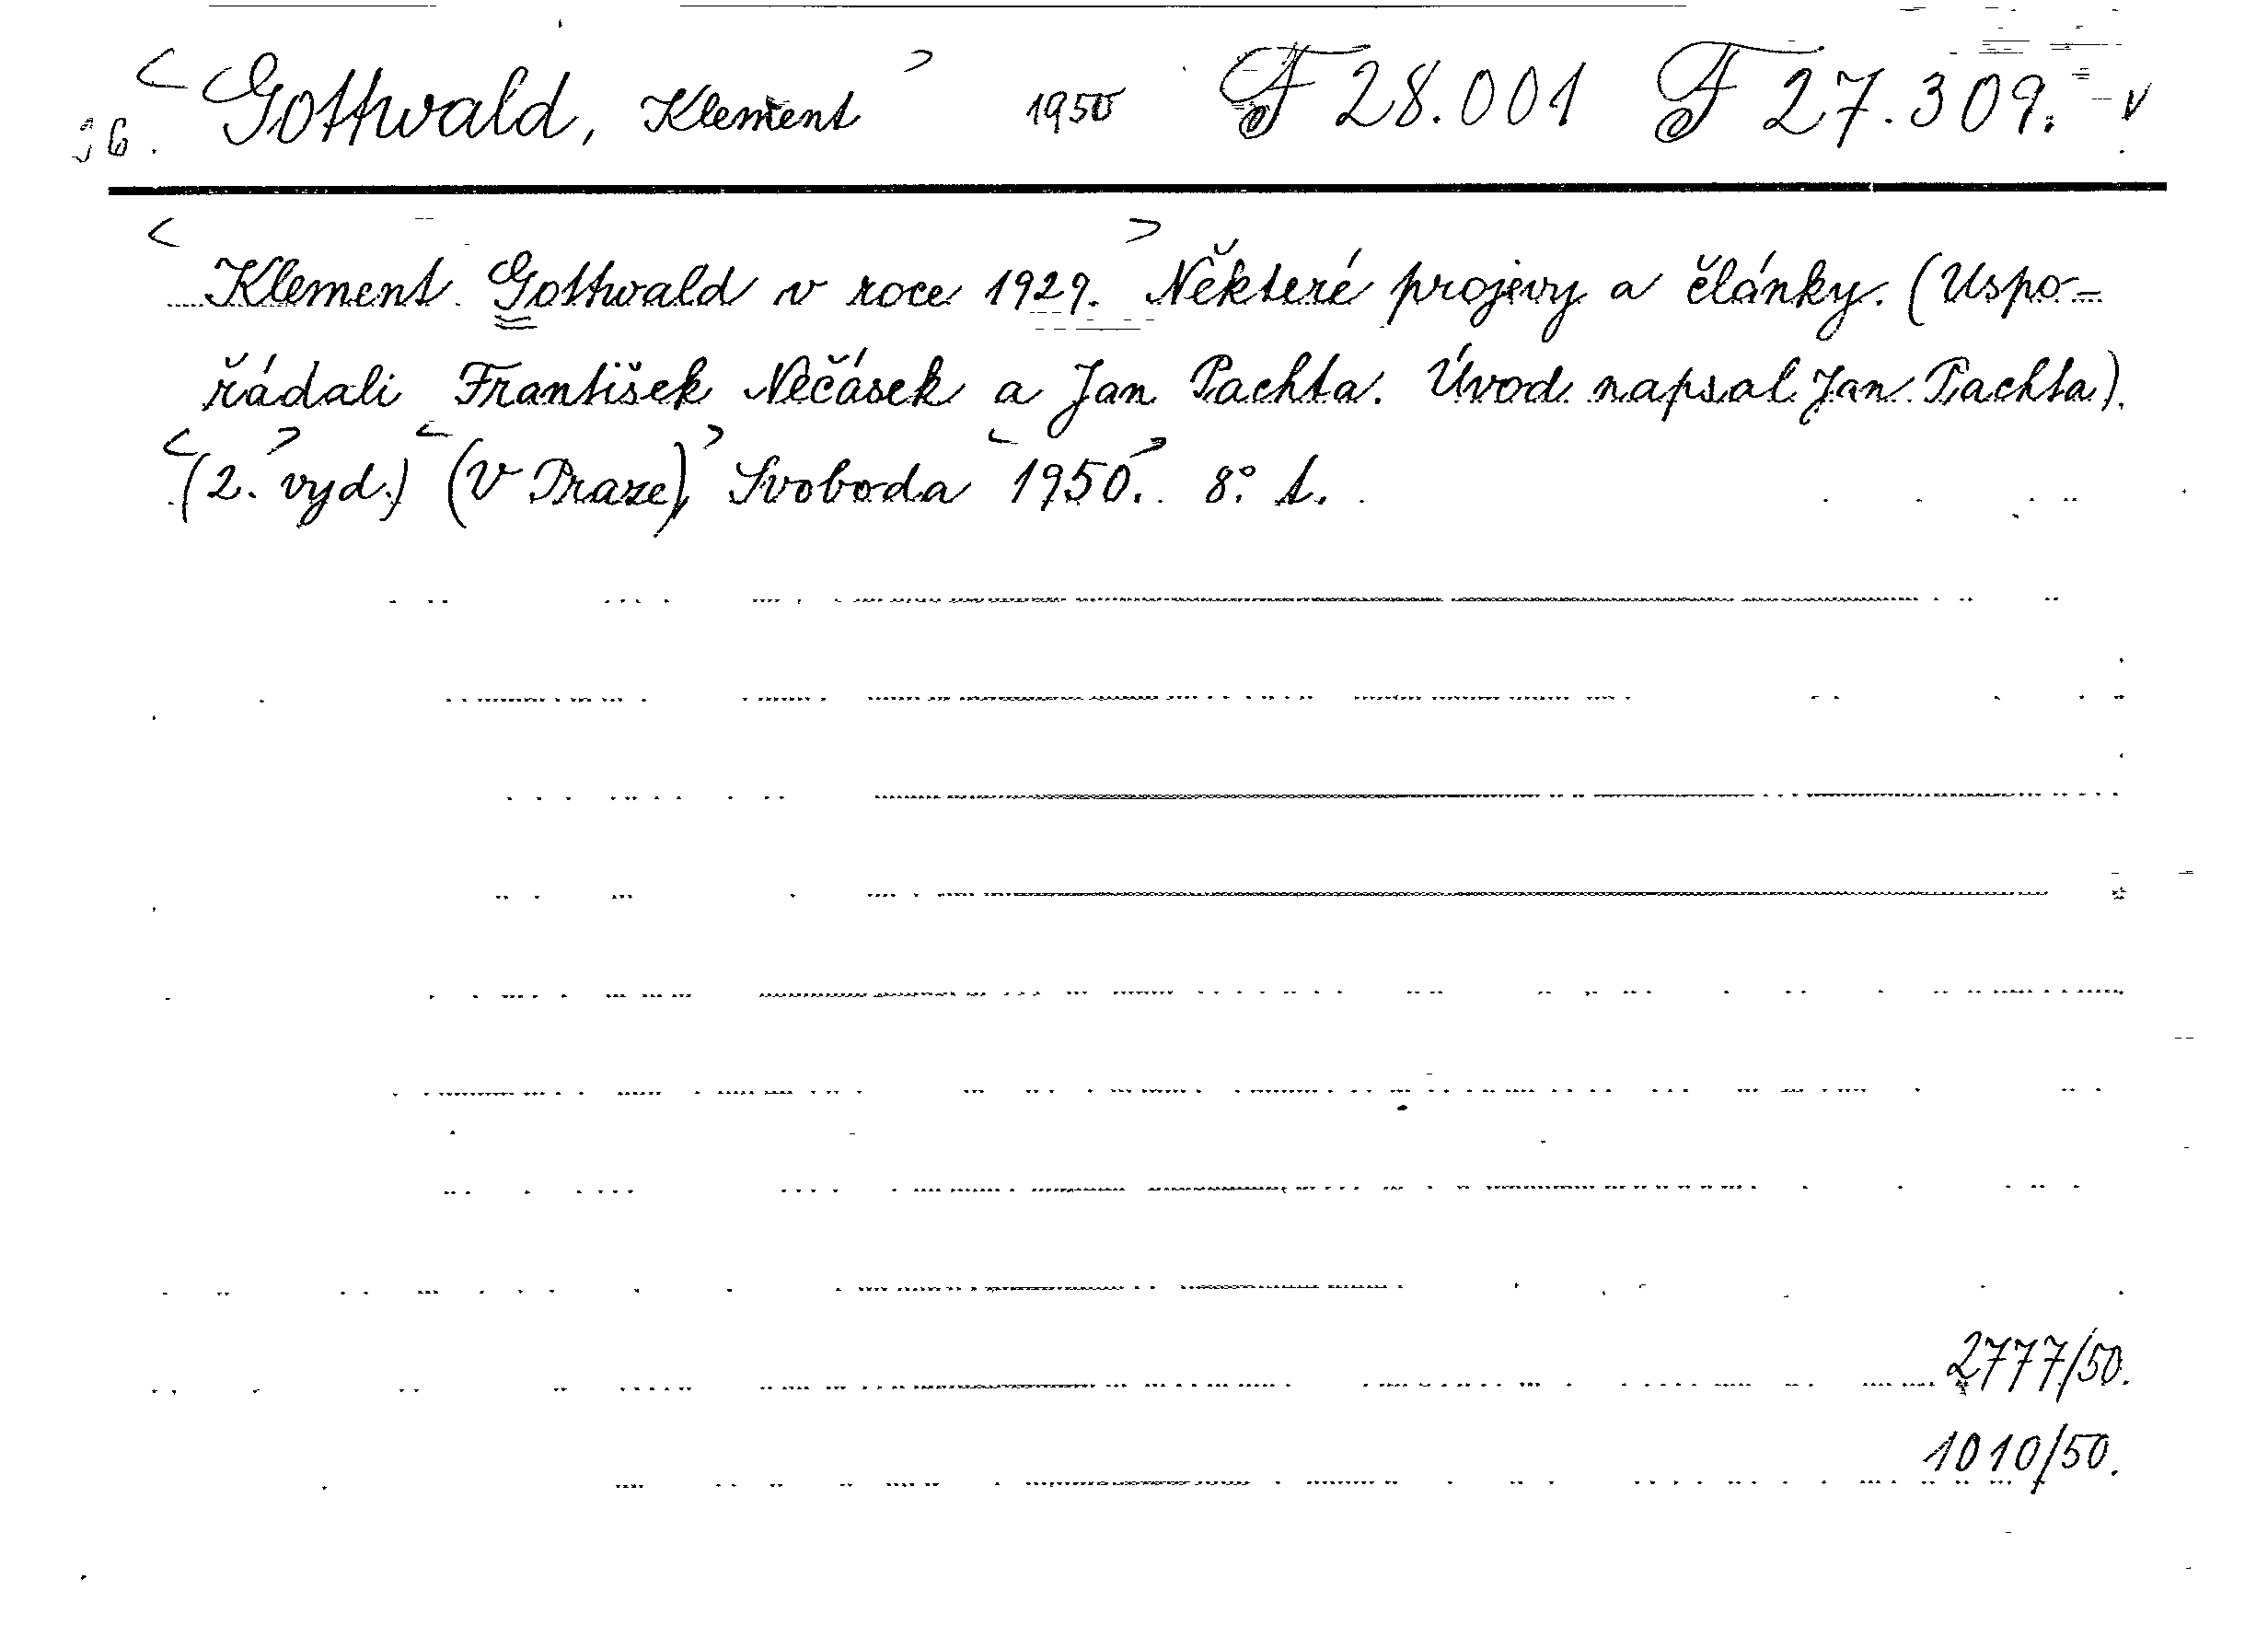 <Gottwald, Klement> 1950 F 28.001 F 27.309. v
36.
<Klement Gottwald v roce 1929.> Některé projevy a články. (Uspo-
řádali František Nečásek a Jan Pachta. Úvod napsal Jan Pachta).
<(2.> vyd.) <(V Praze),> Svoboda <1950.> 8°. s.
2777/50.
1010/50.